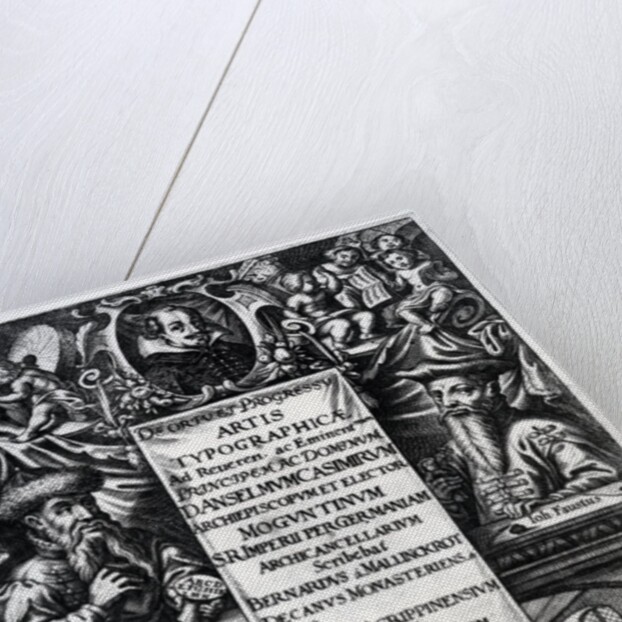 De ortu et Progressu
ARTIS
TYPOGRAPHICÆ
Ad Reveren. ac Eminent
PRINCIPEM AC DOMINUM,
D. ANSELMVM CASIMIRVM
ARCHIEPISCOPVM ET ELECTOR.
MOGVNTINVM
S.R. IMPERII PER GERMANIAM
ARCHICANCELLARIVM
Scribebat
BERNARDVS A MALLINCKROT
DECANVS MONASTERIENS.
GRIPPINENSIVM
Joh. Faustus
ABCD